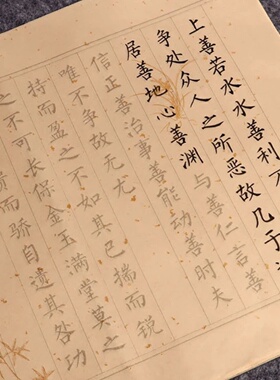 上善若水水善利
争处众人之所恶故几于
居善地心善渊与善仁言善
信正善治事善能动善时夫
唯不争故无尤
持而盈之不如其已揣而锐
之不可长保金玉满堂莫之
而骄自遗其咎功